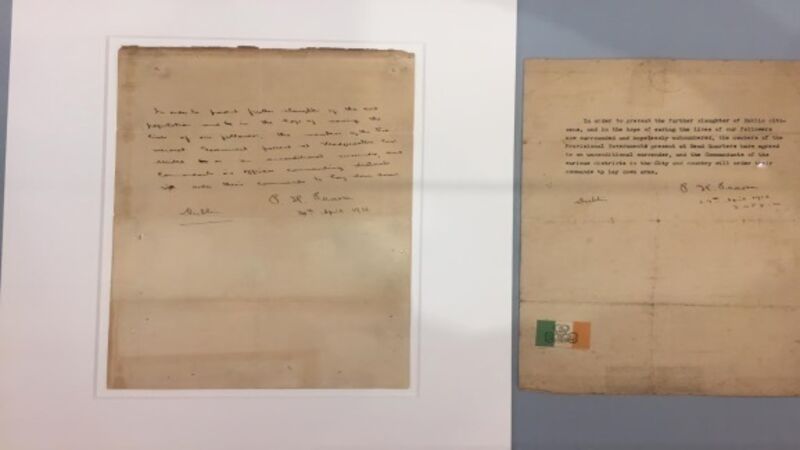 In order to prevent further slaughter of the civil
population and in the hope of saving the
lives of our followers, the members of the Pro-
visional Government present at Headquarters have
decided on an unconditional surrender, and
Commandants or officers commanding districts
will order their commands to lay down arms.
P. H. Pearse
Dublin
30th April 1916
In order to prevent the further slaughter of Dublin citi-
zens, and in the hope of saving the lives of our followers
now surrounded and hopelessly outnumbered, the members of the
Provisional Government present at Head Quarters have agreed
to an unconditional surrender, and the Commandants of the
various districts in the City and country will order their
commands to lay down arms.
P. H. Pearse
Dublin
29th April 1916
3.45 p.m.